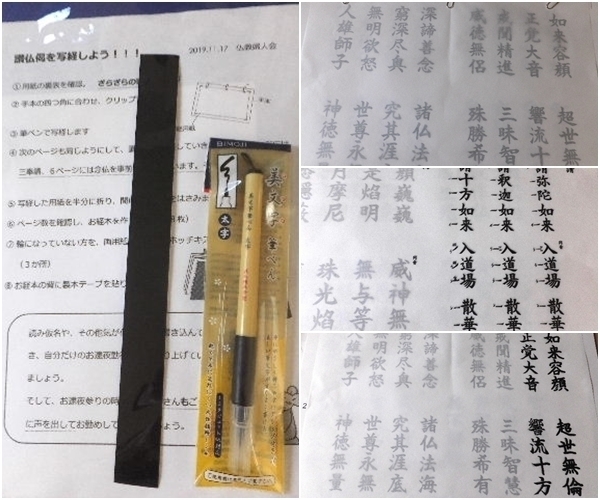 讃仏偈を写経しよう！！！ 2019.11.17 仏教婦人会
①用紙の裏表を確認。 ざらざらの
②手本の四つ角に合わせ、クリップ
③筆ペンで写経します
④次のページも同じようにして、
三奉請、6ページには念仏を事前
⑤写経した用紙を半分に折り、
⑥ページ数を確認し、お経本を
⑦輪になっていない方を、 ホッチキス
（３か所）
⑧お経本の背に製本テープを貼り
読み仮名や、その他気が き込ん
き、自分だけのお逮夜勤 上げてい
ましょう。
そして、お逮夜参りの時 さんもご
に声を出してお勤めして
BIMOJI
美文字 筆ぺん
太字
如来容顔 超世無
正覚大音 響流十
戒聞精進 三昧智
威徳無侶 殊勝希
深諦善念 諸仏法
窮深尽奥 究其涯
無明欲怒 世尊永
人雄師子 神徳無
請弥陀如来 入道場 散華
請釈迦如来 入道場 散華
請十方如来 入道場 散華
顔巍巍 威神無
是焔明 無与等
月摩尼 珠光焔
如来容顔 超世無倫
正覚大音 響流十方
戒聞精進 三昧智慧
威徳無侶 殊勝希有
深諦善念 諸仏法海
窮深尽奥 究其涯底
無明欲怒 世尊永無
人雄師子 神徳無量
2